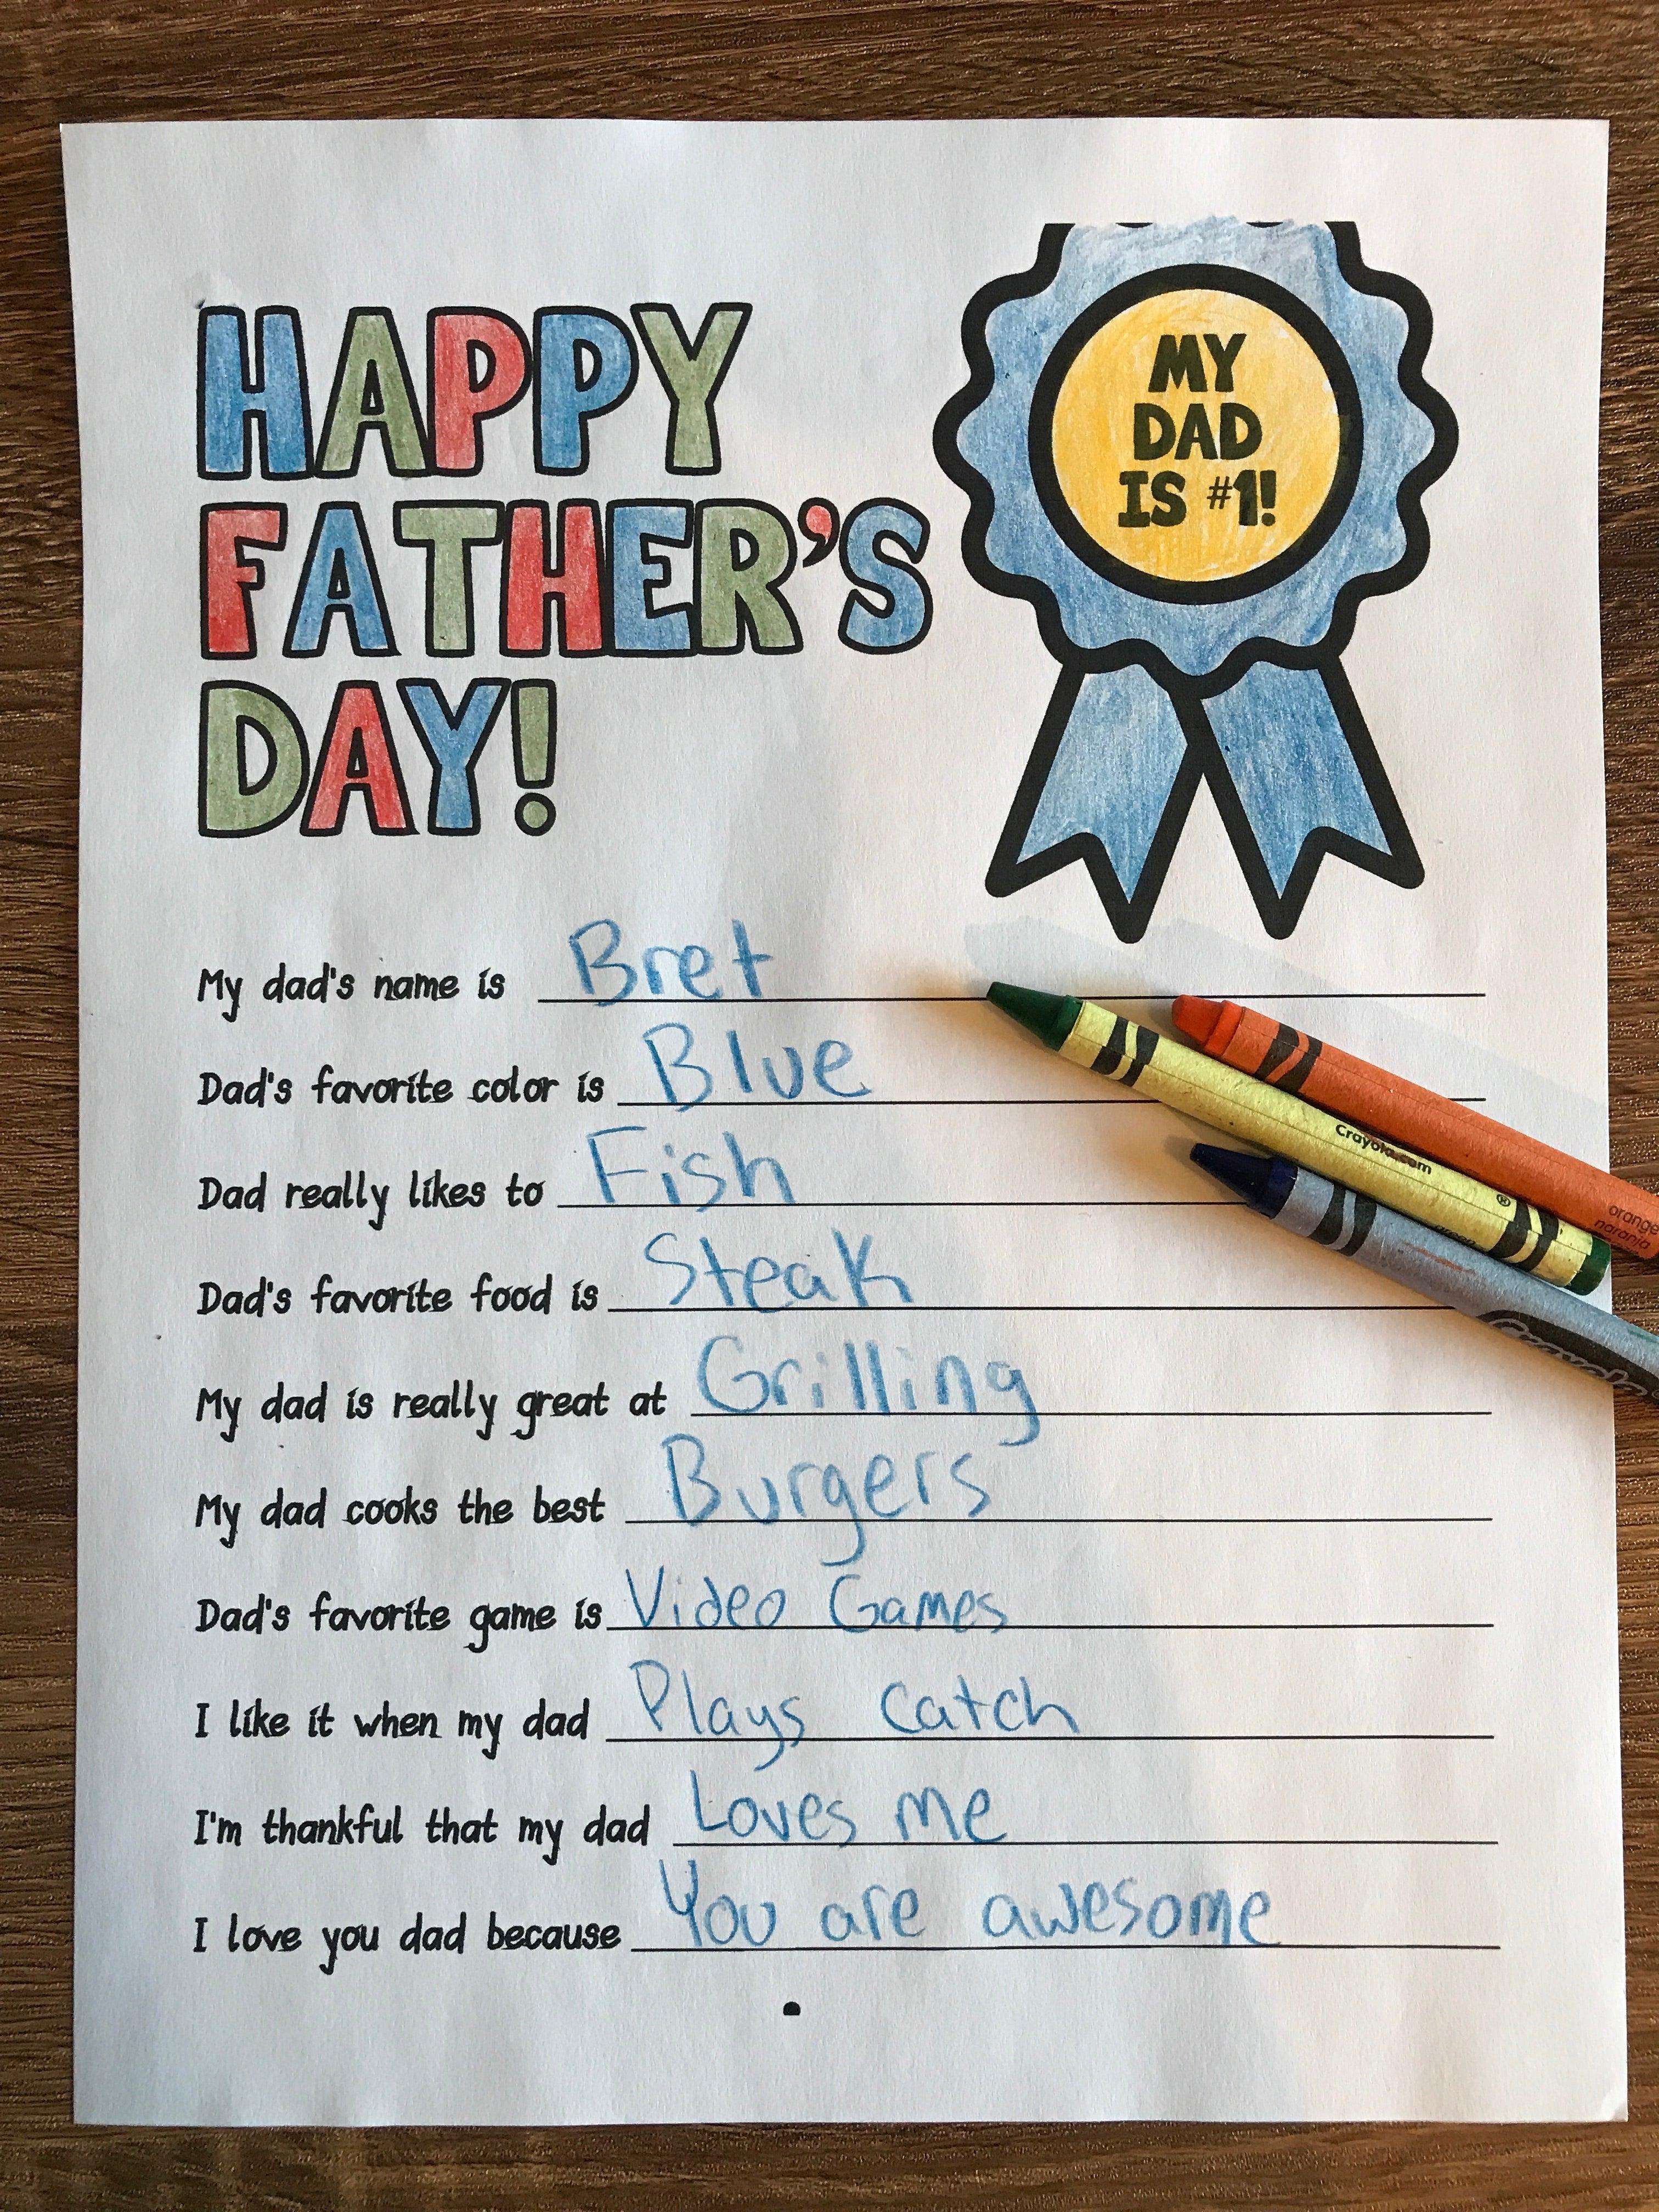 HAPPY
FATHER'S
DAY!
MY
DAD
IS #1!
My dad's name is Bret
Dad's favorite color is Blue
Dad really likes to Fish
Dad's favorite food is Steak
My dad is really great at Grilling
My dad cooks the best Burgers
Dad's favorite game is Video Games
I like it when my dad Plays catch
I'm thankful that my dad Loves me
I love you dad because You are awesome
Crayola.com
®
green
orange
naranja
Crayola